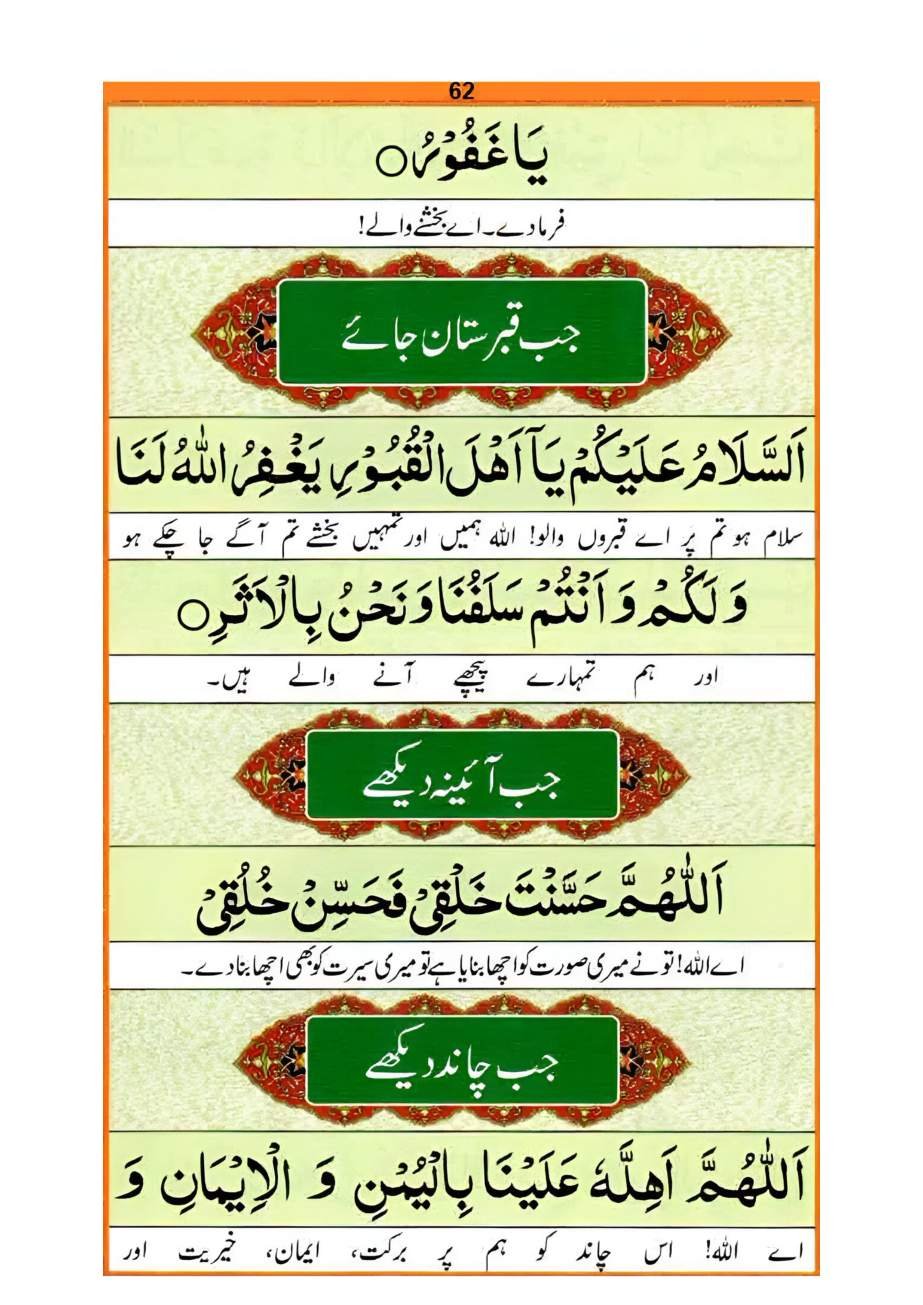 62
يَا غَفُوْرُ○
فرمادے۔اے بخشنے والے!
جب قبرستان جائے
اَلسَّلَامُ عَلَيْكُمْ يَآ اَهْلَ الْقُبُوْرِ يَغْفِرُ اللّٰهُ لَنَا
سلام ہو تم پر اے قبروں والو! اللہ ہمیں اور تمہیں بخشے تم آگے جا چکے ہو
وَلَكُمْ وَ اَنْتُمْ سَلَفُنَا وَ نَحْنُ بِالْاَثَرِ○
اور ہم تمہارے پیچھے آنے والے ہیں۔
جب آئینہ دیکھے
اَللّٰهُمَّ حَسَّنْتَ خَلْقِیْ فَحَسِّنْ خُلُقِیْ
اے اللہ! تو نے میری صورت کو اچھا بنایا ہے تو میری سیرت کو بھی اچھا بنا دے۔
جب چاند دیکھے
اَللّٰهُمَّ اَهِلَّهٗ عَلَيْنَا بِالْيُمْنِ وَ الْاِيْمَانِ وَ
اے اللہ! اس چاند کو ہم پر برکت، ایمان، خیریت اور